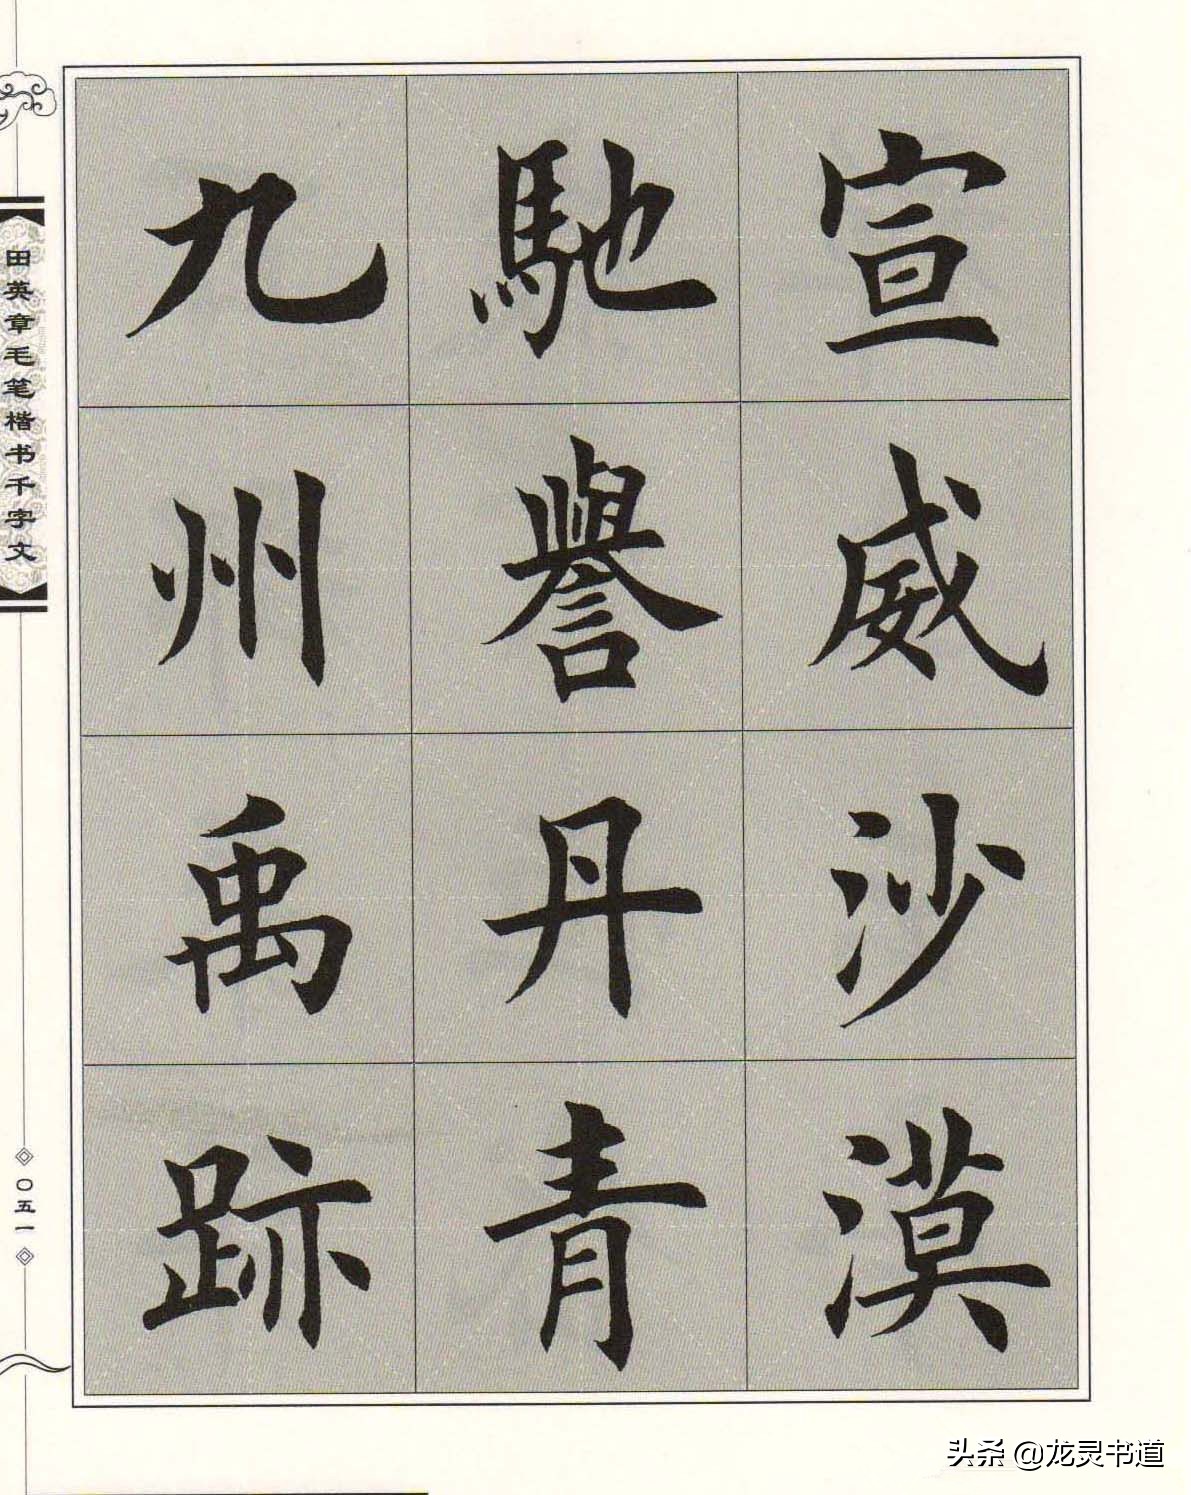 宣威沙漠
馳譽丹青
九州禹跡
田英章毛笔楷书千字文
〇五一
头条 @龙灵书道